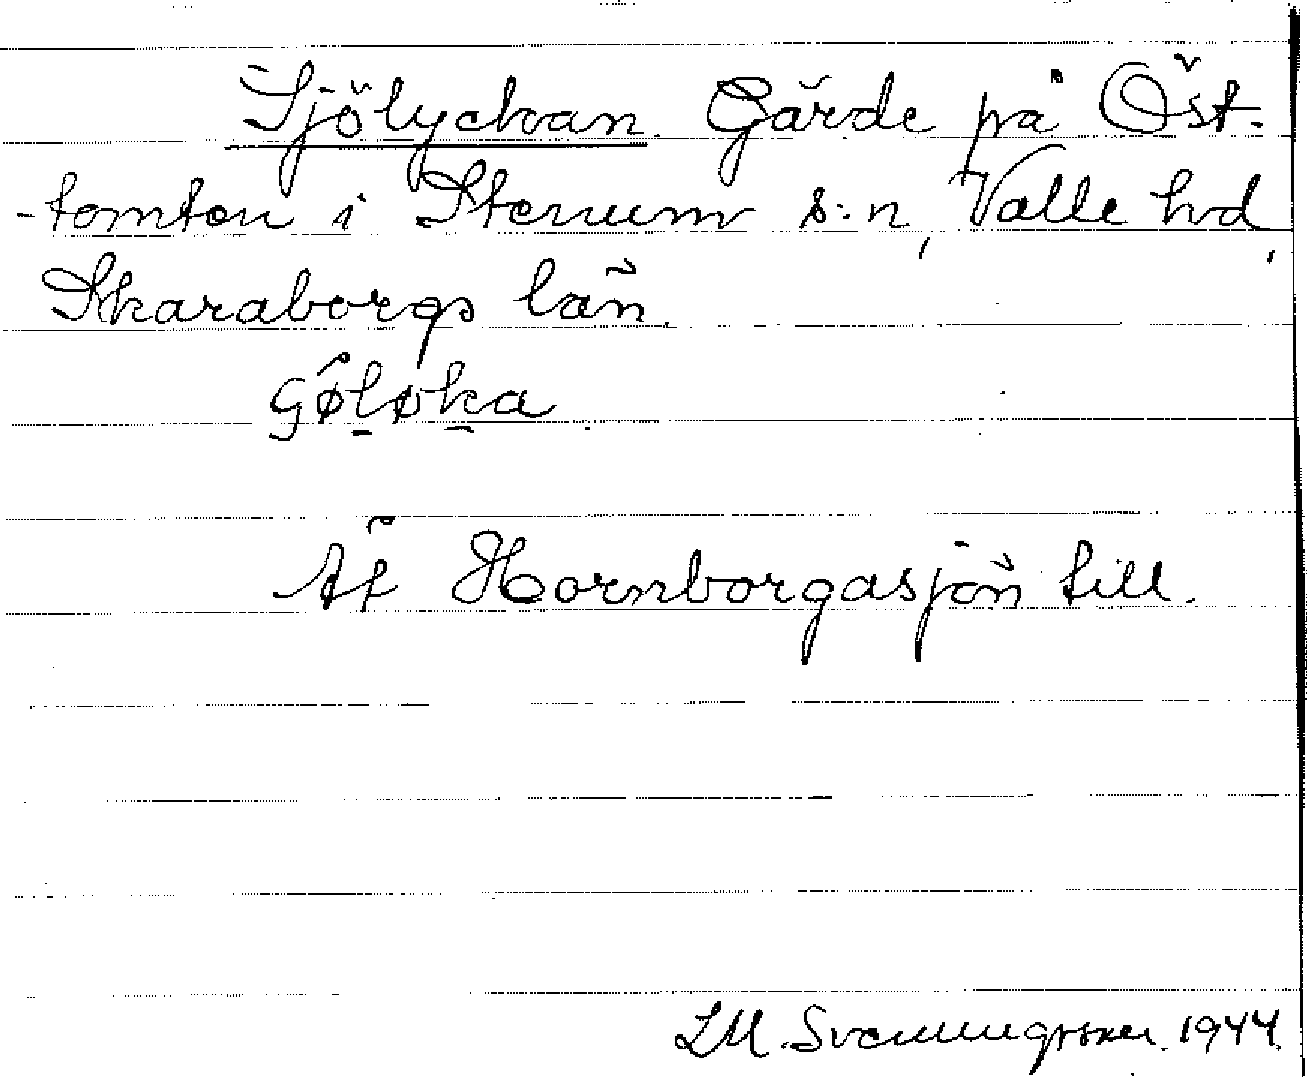 Sjölyckan. Gärde på Öst-
-tomten i Stenum s:n, Valle hd,
Skaraborgs län.
Åt Hornborgasjön till.
LM. Svenungsson 1944.